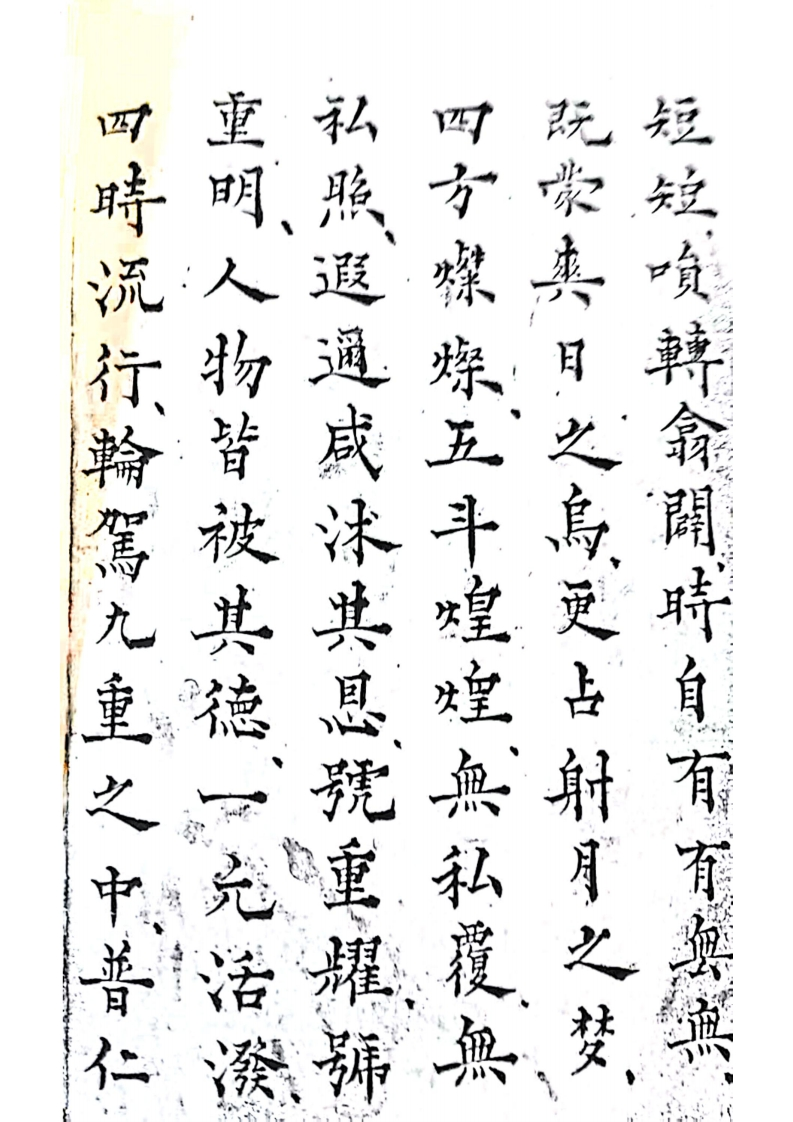 短短、唄轉翕闢、時自有有無無、
既蒙爽日之烏、更占射月之梦、
四方燦燦、五斗煌煌、無私覆、無
私照、遐邇咸沐其恩、號重耀、號
重明、人物皆被其德、一元活潑、
四時流行、輪駕九重之中、普仁